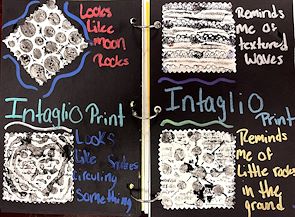 Looks
Like
moon
Rocks
Intaglio Print
Looks
Like
circuling
Something
Reminds
me of
textured
waves
Intaglio
Print
Reminds
me of
little rocks
in the
ground